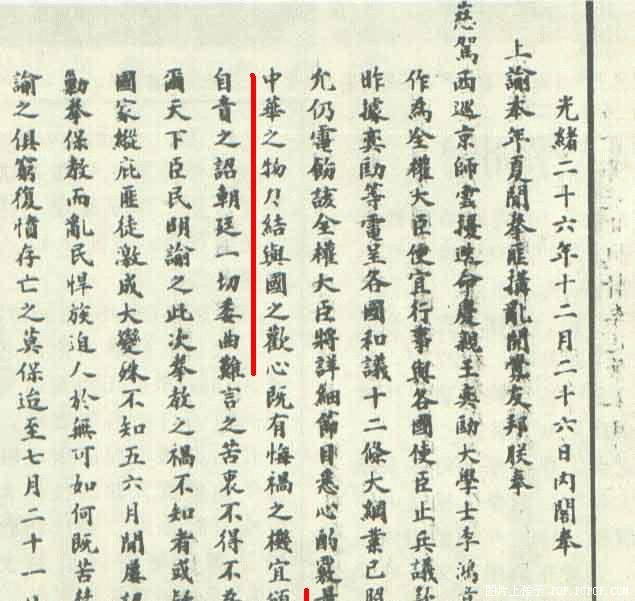 光緒二十六年十二月二十六日內閣奉
上諭本年夏間拳匪搆亂開釁友邦朕奉
慈駕西巡京師雲擾迭命慶親王奕劻大學士李鴻
作為全權大臣便宜行事與各國使臣止兵議款
昨據奕劻等電呈各國和議十二條大綱業已照
允仍電飭該全權大臣將詳細節目悉心酌覈量
中華之物力結與國之歡心既有悔禍之機宜頒
自責之詔朝廷一切委曲難言之苦衷不得不為
爾天下臣民明諭之此次拳教之禍不知者或疑
國家縱庇匪徒激成大變殊不知五六月間屢詔
勦拳保教而亂民悍族迫人於無可如何既苦禁
諭之俱窮復憤存亡之莫保迨至七月二十一
图片上传于：POP.PCPOP.COM